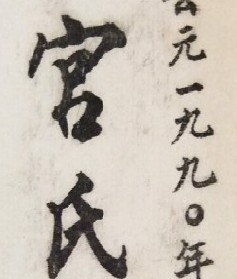 公元一九九〇年
宫氏